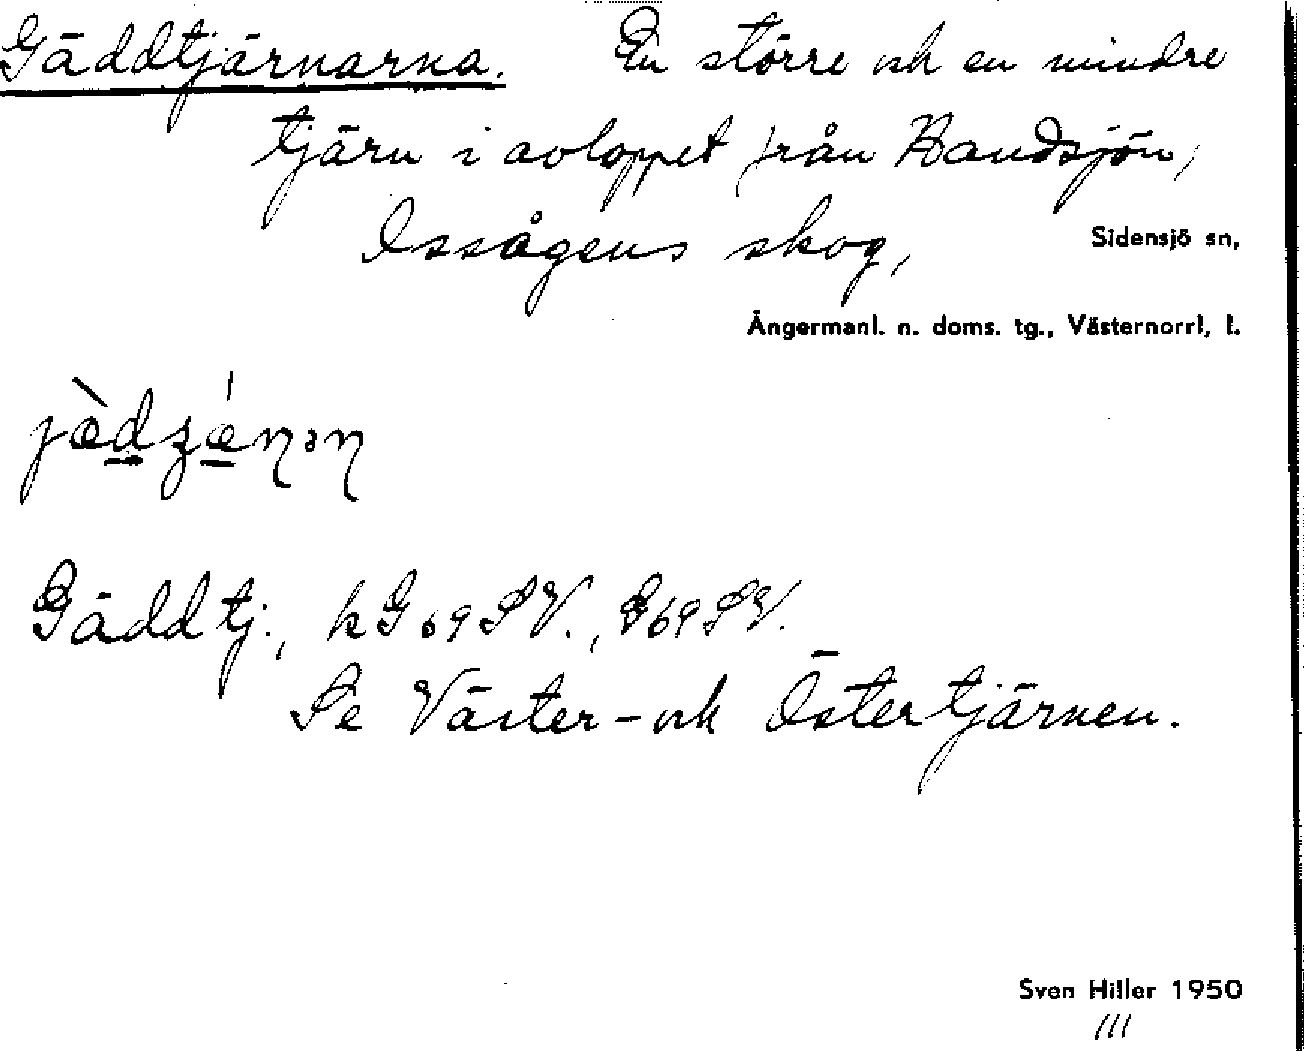 Gäddtjärnarna. En större och en mindre
tjärn i avloppet från Bandsjön,
Ossågens skog, Sidensjö sn,
Ångermanl. n. doms. tg., Västernorrl. l.
Gäddtj., k G 69 SV., G 69 SV.
Se Väster- och Östertjärnen.
Sven Hiller 1950